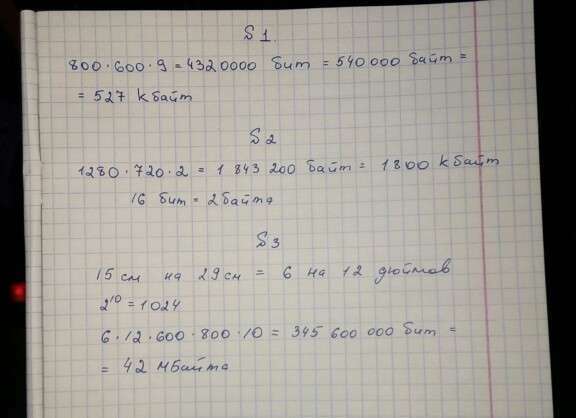 S 1.
800·600·9 = 4320000 бит = 540 000 байт =
= 527 кбайт
S 2
1280·720·2 = 1 843 200 байт = 1800 кбайт
16 бит = 2 байта
S 3
15 см на 29 см = 6 на 12 дюймов
2¹⁰ = 1024
6·12·600·800·10 = 345 600 000 бит =
= 42 мбайта